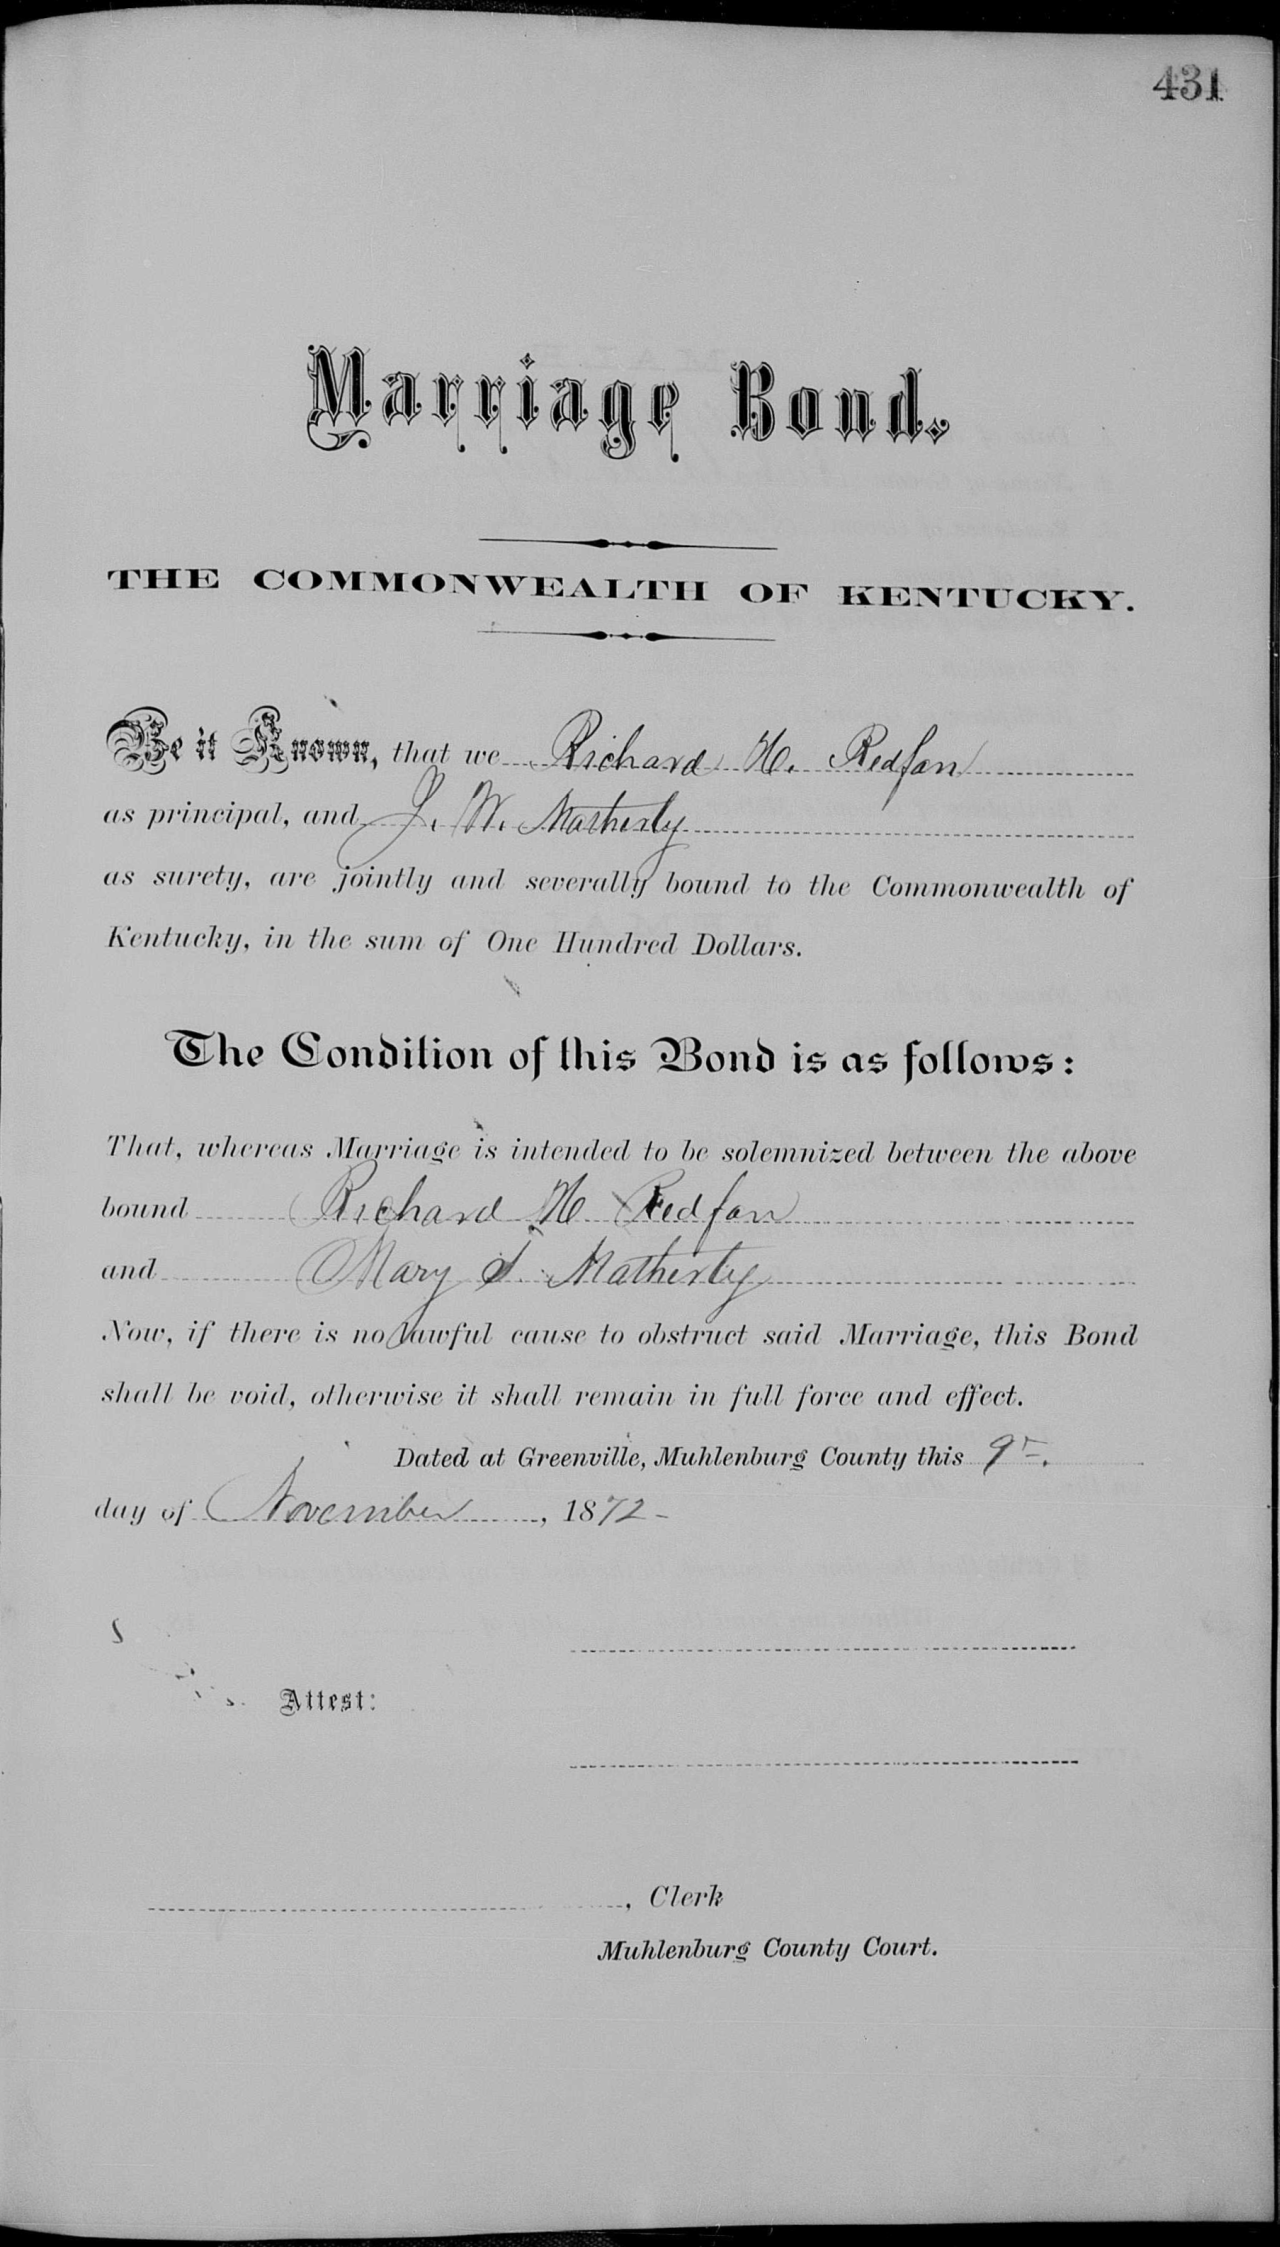 431
Marriage Bond.
THE COMMONWEALTH OF KENTUCKY.
Be it Known, that we Richard H. Redfan
as principal, and J. W. Matherly
as surety, are jointly and severally bound to the Commonwealth of
Kentucky, in the sum of One Hundred Dollars.
The Condition of this Bond is as follows:
That, whereas Marriage is intended to be solemnized between the above
bound Richard H Redfan
and Mary S. Matherly
Now, if there is no lawful cause to obstruct said Marriage, this Bond
shall be void, otherwise it shall remain in full force and effect.
Dated at Greenville, Muhlenburg County this 9th.
day of November, 1872-
Attest:
, Clerk
Muhlenburg County Court.